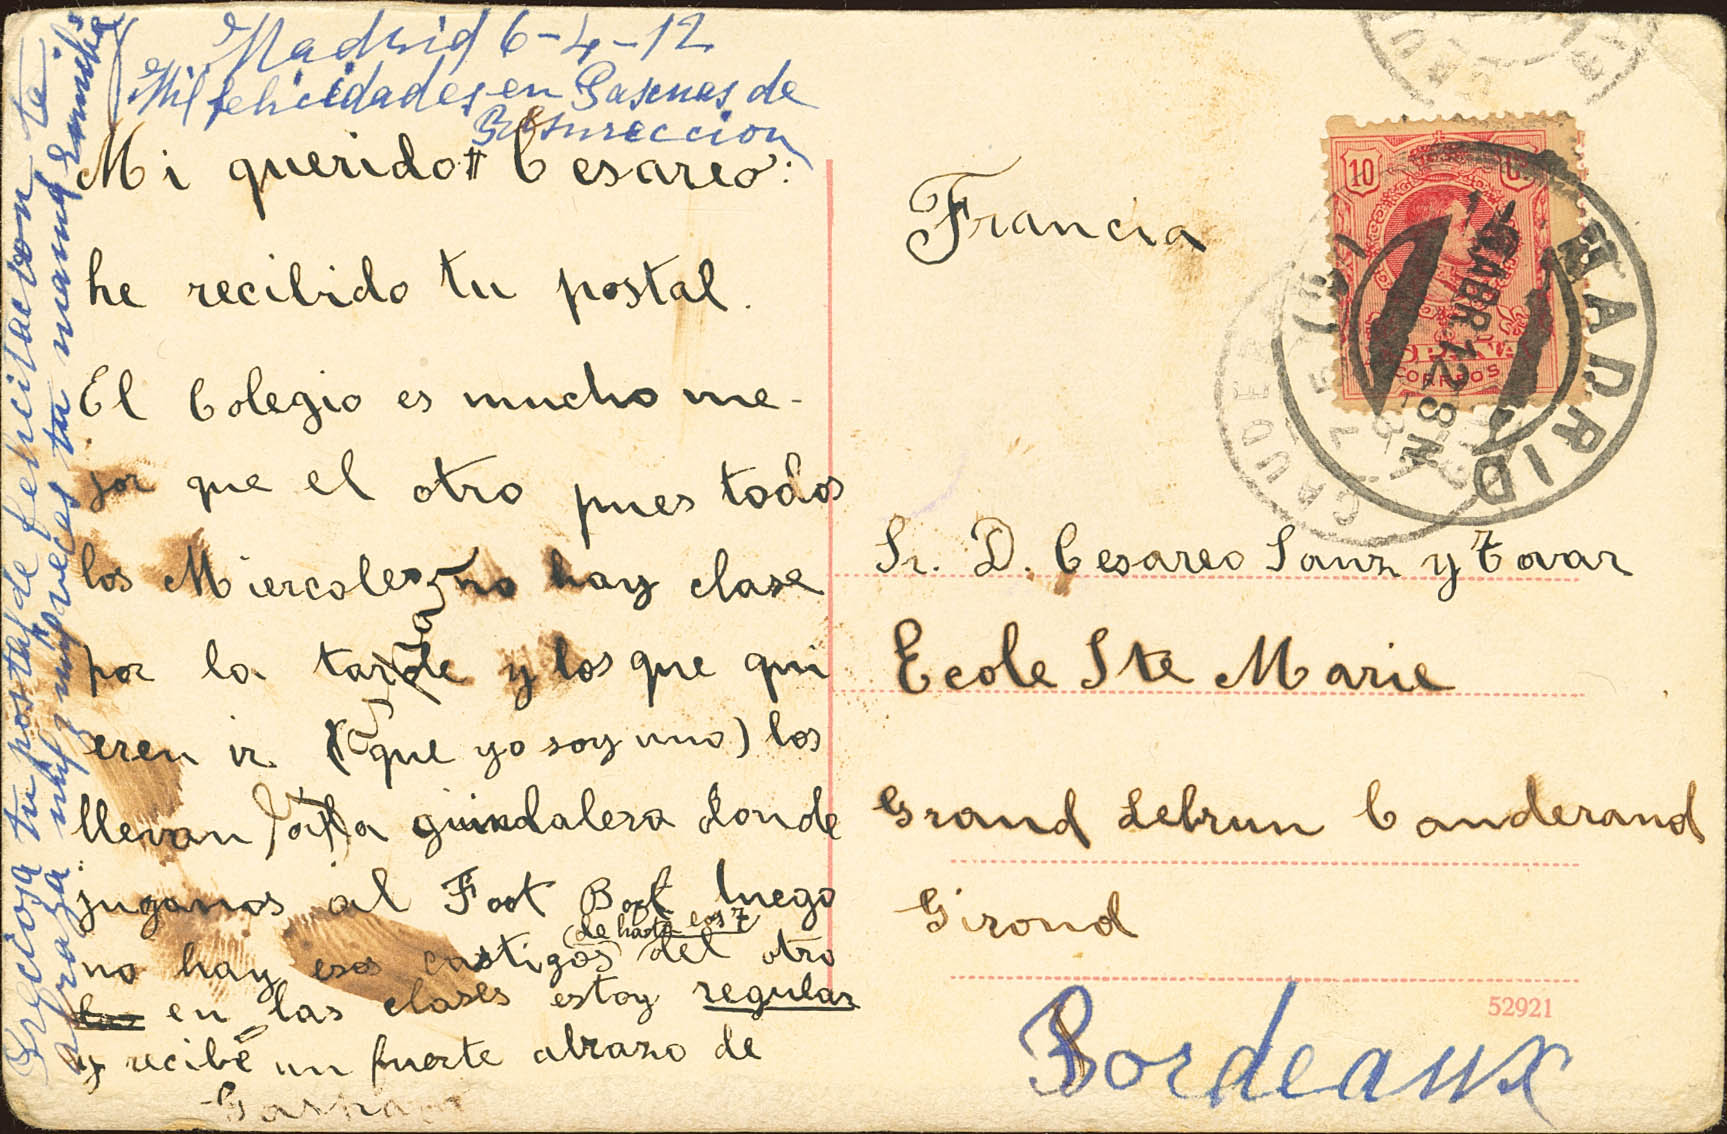 Madrid 6-4-12
Mil felicidades en Pascuas de
Resurreccion
Mi querido Cesareo:
he recibido tu postal.
El Colegio es mucho me-
jor que el otro pues todos
los Miercoles no hay clase
por la tarde y los que qui
eren ir (que yo soy uno) los
llevan a la guindalera donde
jugamos al Foot Boot luego
(de hasta las 7)
no hay esos castigos del otro
en las clases estoy regular
y recibe un fuerte abrazo de
Gaspar
Preciosa tu postal de felicitacion te
abraza mil y mil veces tu mamá
Francia
Sr. D. Cesareo Sanz y Tovar
Ecole Ste Marie
Grand Lebrun Canderand
Girond
Bordeaux
52921
10
ESPAÑA
CORREOS
MADRID
ABR 12 8M
CAUDERAN